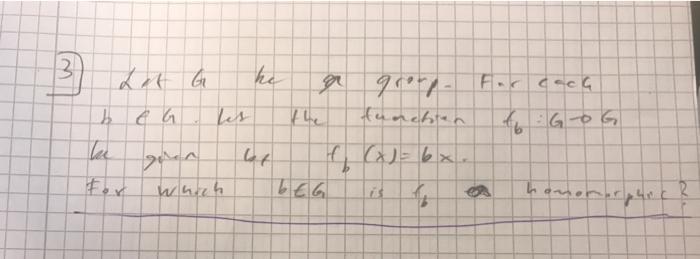 3 Let G be a group. For each
b ∈ G. let the function f_b : G → G
be given by f_b (x) = bx.
For which b ∈ G is f_b a homomorphic?